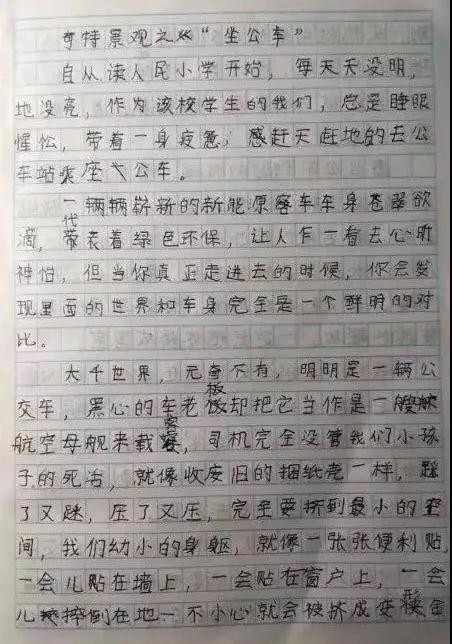 奇特景观之《"坐公车"
自从读人民小学开始，每天天没明，
地没亮，作为该校学生的我们，总是睡眼
惺忪，带着一身疲惫，感赶天赶地的去公
车站乘座公车。
一辆辆崭新的新能原客车车身苍翠欲
滴，代表着绿色环保，让人乍一看去心旷
神怡，但当你真正走进去的时候，你会发
现里面的世界和车身完全是一个鲜明的对
比。
大千世界，无奇不有，明明是一辆公
交车，黑心的车老板却把它当作是一艘
航空母舰来载客，司机完全没管我们小孩
子的死活，就像收废旧的捆纸壳一样，踩
了又踩，压了又压，完全要挤到最小的空
间，我们幼小的身躯，就像一张张便利贴，
一会儿贴在墙上，一会贴在窗户上，一会
儿摔倒在地一不小心就会被挤成变形金